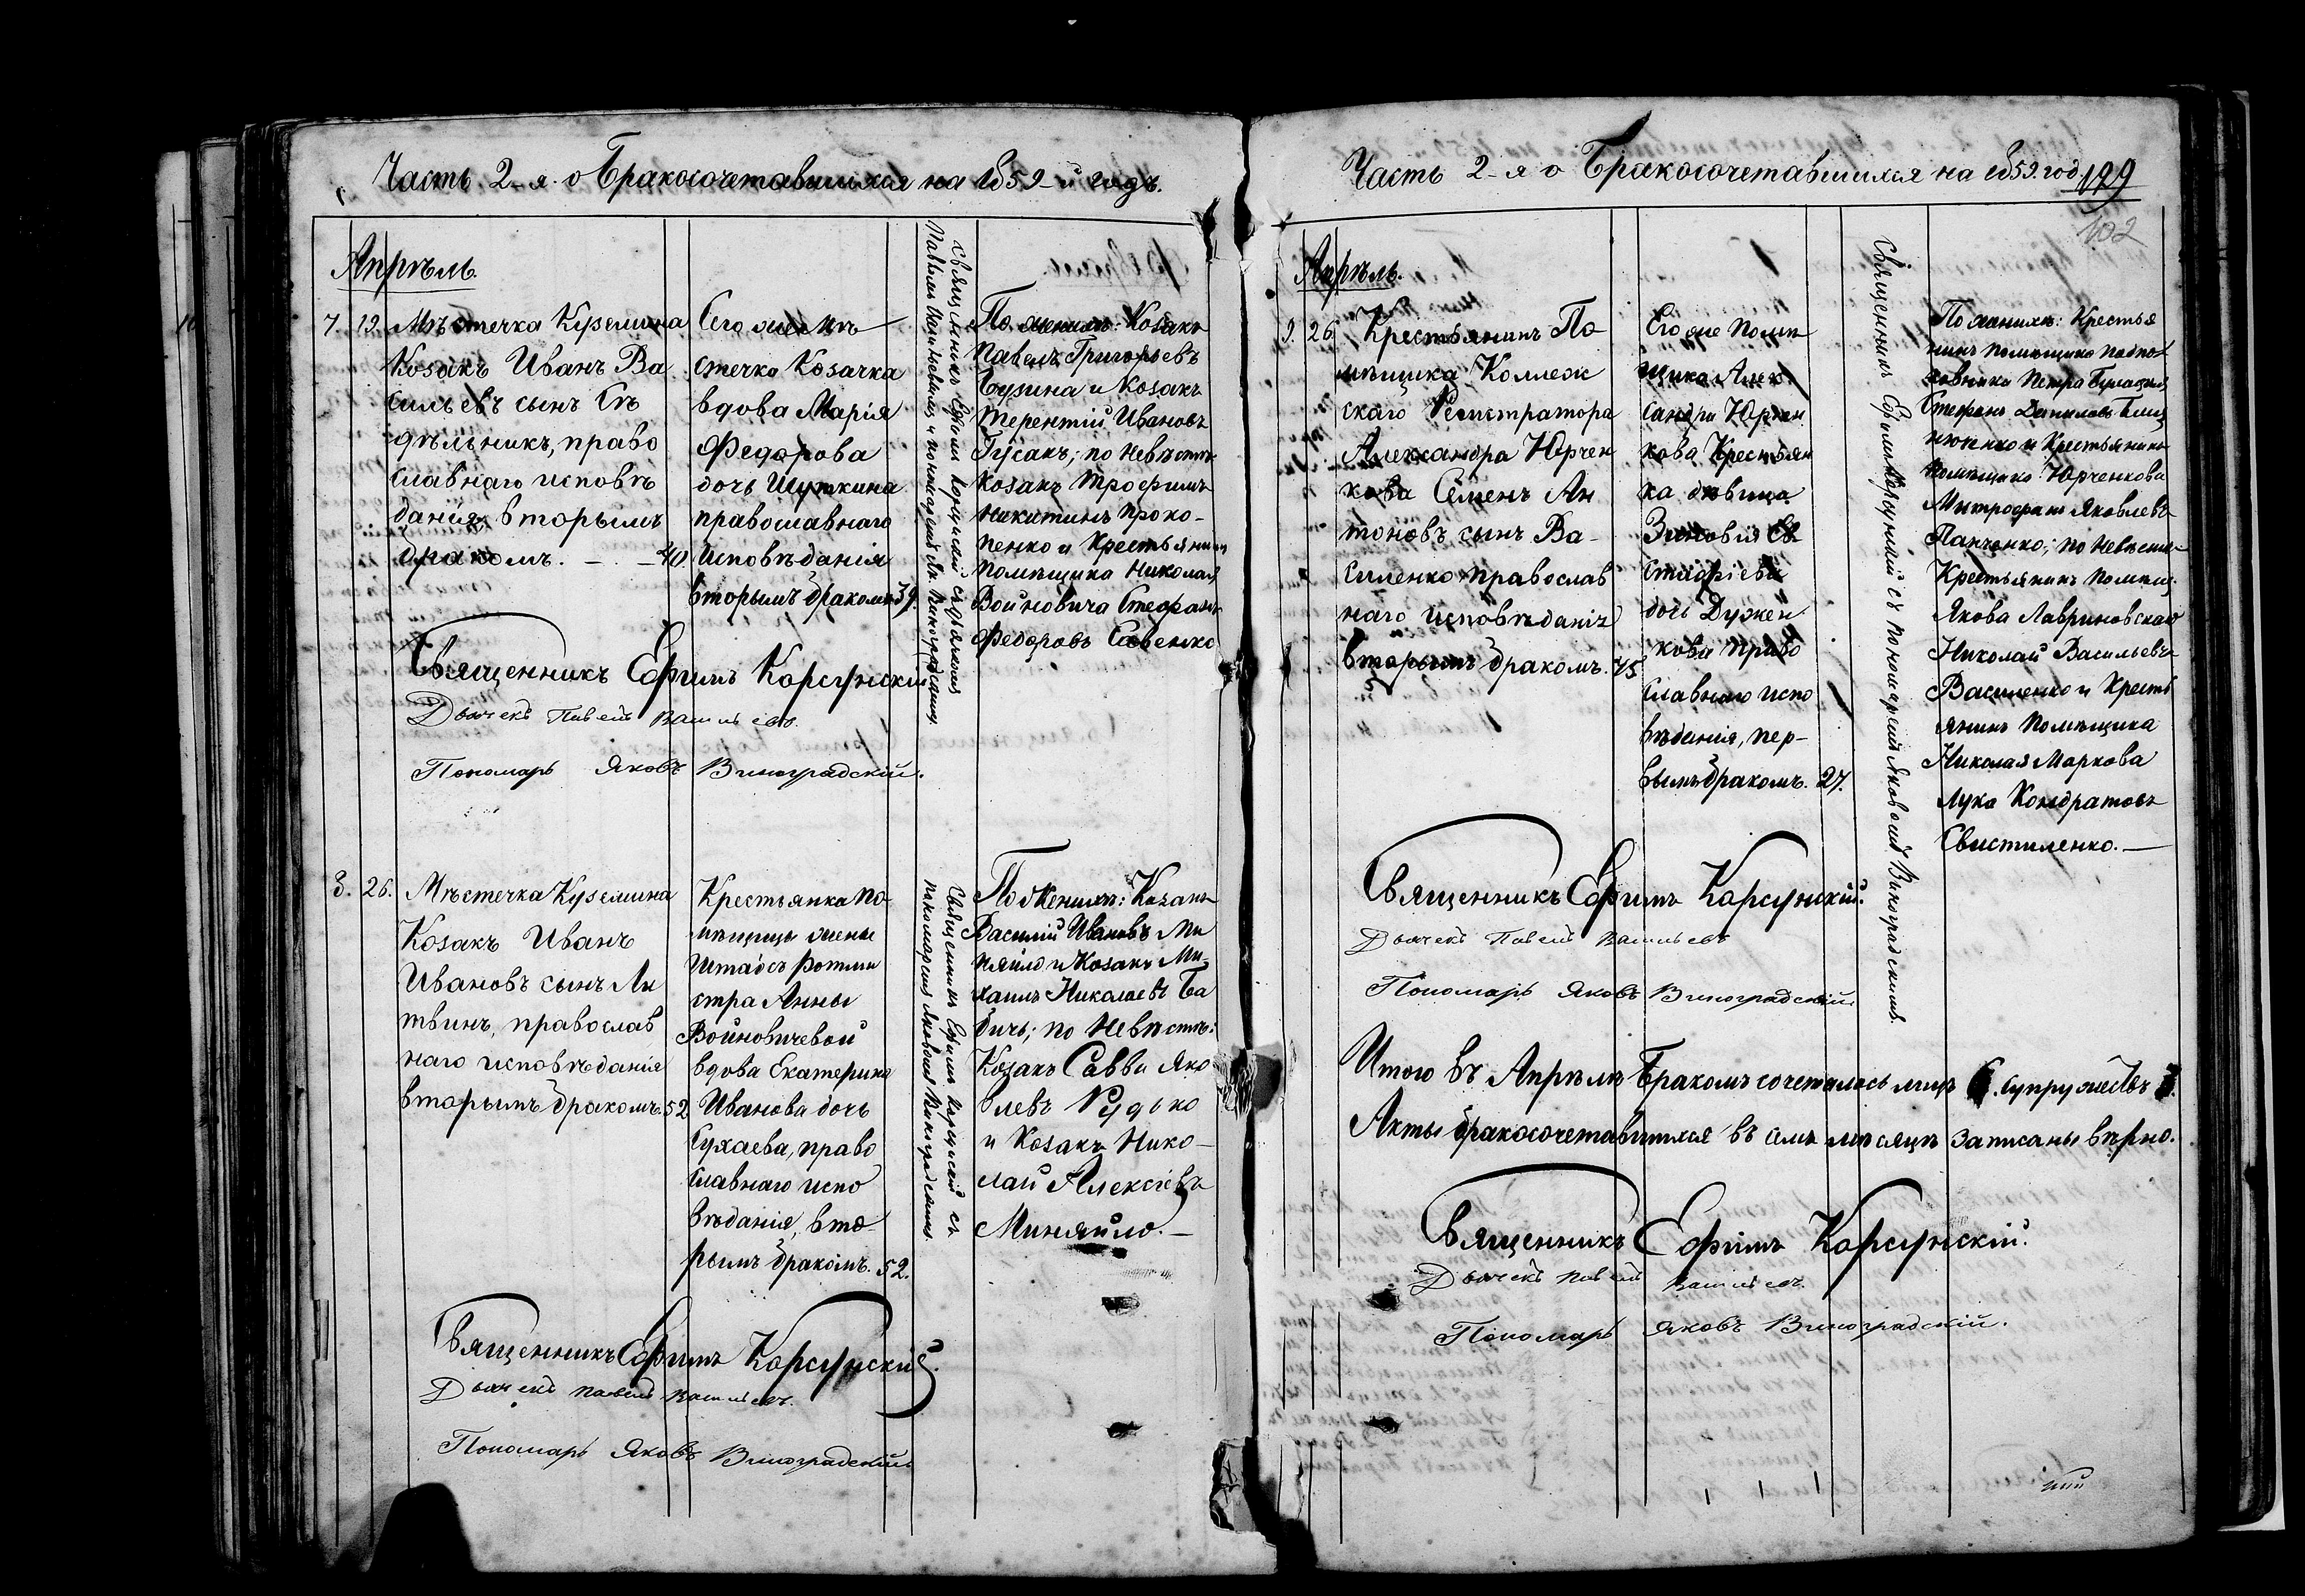 Часть 2-я о Бракосочетавшихся на 1859-й годъ.
Апрѣль.
7. 19. Мѣстечка Куземина
Козакъ Иванъ Ва
сильевъ сынъ Сѣ
дѣльникъ, право
славнаго исповѣ
данія, вторымъ
бракомъ. — 40.
Его же мѣ
стечка Козачка
вдова Марія
Федорова
дочь
православнаго
исповѣданія
вторымъ бракомъ 39.
Священникъ Ефимъ Корсунскій съ дьячкомъ
Павломъ Васильевымъ и пономаремъ Як. Виноградскимъ.
По женихѣ: Козакъ
Павелъ Григорьевъ
Бузина и Козакъ
Терентій Ивановъ
Гусакъ; по невѣстѣ
Козакъ Трофимъ
Никитинъ Проко-
пенко и Крестьянинъ
помѣщика Николая
Войновича Стефанъ
Федоровъ Савенко
Священникъ Ефимъ Корсунскій
Дьячекъ Павелъ Васильевъ.
Пономарь Яковъ Виноградскій.
8. 26. Мѣстечка Куземина
Козакъ Иванъ
Ивановъ сынъ Ли
твинъ, православ
наго исповѣданія
вторымъ бракомъ. 52.
Крестьянка по-
мѣщицы жены
Штабсъ Ротми
стра Анны
Войновичевой
вдова Екатерина
Иванова дочь
Сухаева, право
славнаго испо
вѣданія, вто-
рымъ бракомъ. 52.
Священникъ Ефимъ Корсунскій съ
пономаремъ Яковомъ Виноградскимъ.
По женихѣ: Козакъ
Василій Ивановъ Ми
няйло и Козакъ Ми-
хаилъ Николаевъ Ба
бичь; по невѣстѣ:
Козакъ Савва Яко
влевъ Рудько
и Козакъ Нико-
лай Алексіевъ
Миняйло. —
Священникъ Ефимъ Корсунскій.
Дьячекъ Павелъ Васильевъ.
Пономарь Яковъ Виноградскій
Часть 2-я о Бракосочетавшихся на 1859. год
199
102
Апрѣль.
9. 26. Крестьянинъ По
мѣщика Коллеж
скаго Регистратора
Александра Юрчен
кова Семенъ Ан
тоновъ сынъ Ва-
силенко православ
наго исповѣданія
вторымъ бракомъ. 45
Его же помѣ
щика Алек
сандра Юрчен
кова Крестьян
ка дѣвица
Зиновія Ев
стафіева
дочь Дужен
кова право
славнаго испо
вѣданія, пер-
вымъ бракомъ. 27.
Священникъ Ефимъ Корсунскій съ пономаремъ Яковомъ Виноградскимъ.
По женихѣ: Крестья
нинъ помѣщика подпол
ковника Петра
Стефанъ Даниловъ
и Крестьянинъ
помѣщика Юрченкова
Митрофанъ Яковлевъ
Панченко; по невѣстѣ
Крестьянинъ помѣщ.
Якова Лавриновскаго
Николай Васильевъ
Василенко и Кресть
янинъ помѣщика
Николая Маркова
Лука Кондратовъ
Свистиленко. —
Священникъ Ефимъ Корсунскій.
Дьячекъ Павелъ Васильевъ
Пономарь Яковъ Виноградскій
Итого въ Апрѣлѣ Бракомъ сочеталось лицъ 6. супружествъ 3.
Акты бракосочетавшихся въ семъ мѣсяцѣ записаны вѣрно.
Священникъ Ефимъ Корсунскій.
Дьячекъ Павелъ Васильевъ.
Пономарь Яковъ Виноградскій.